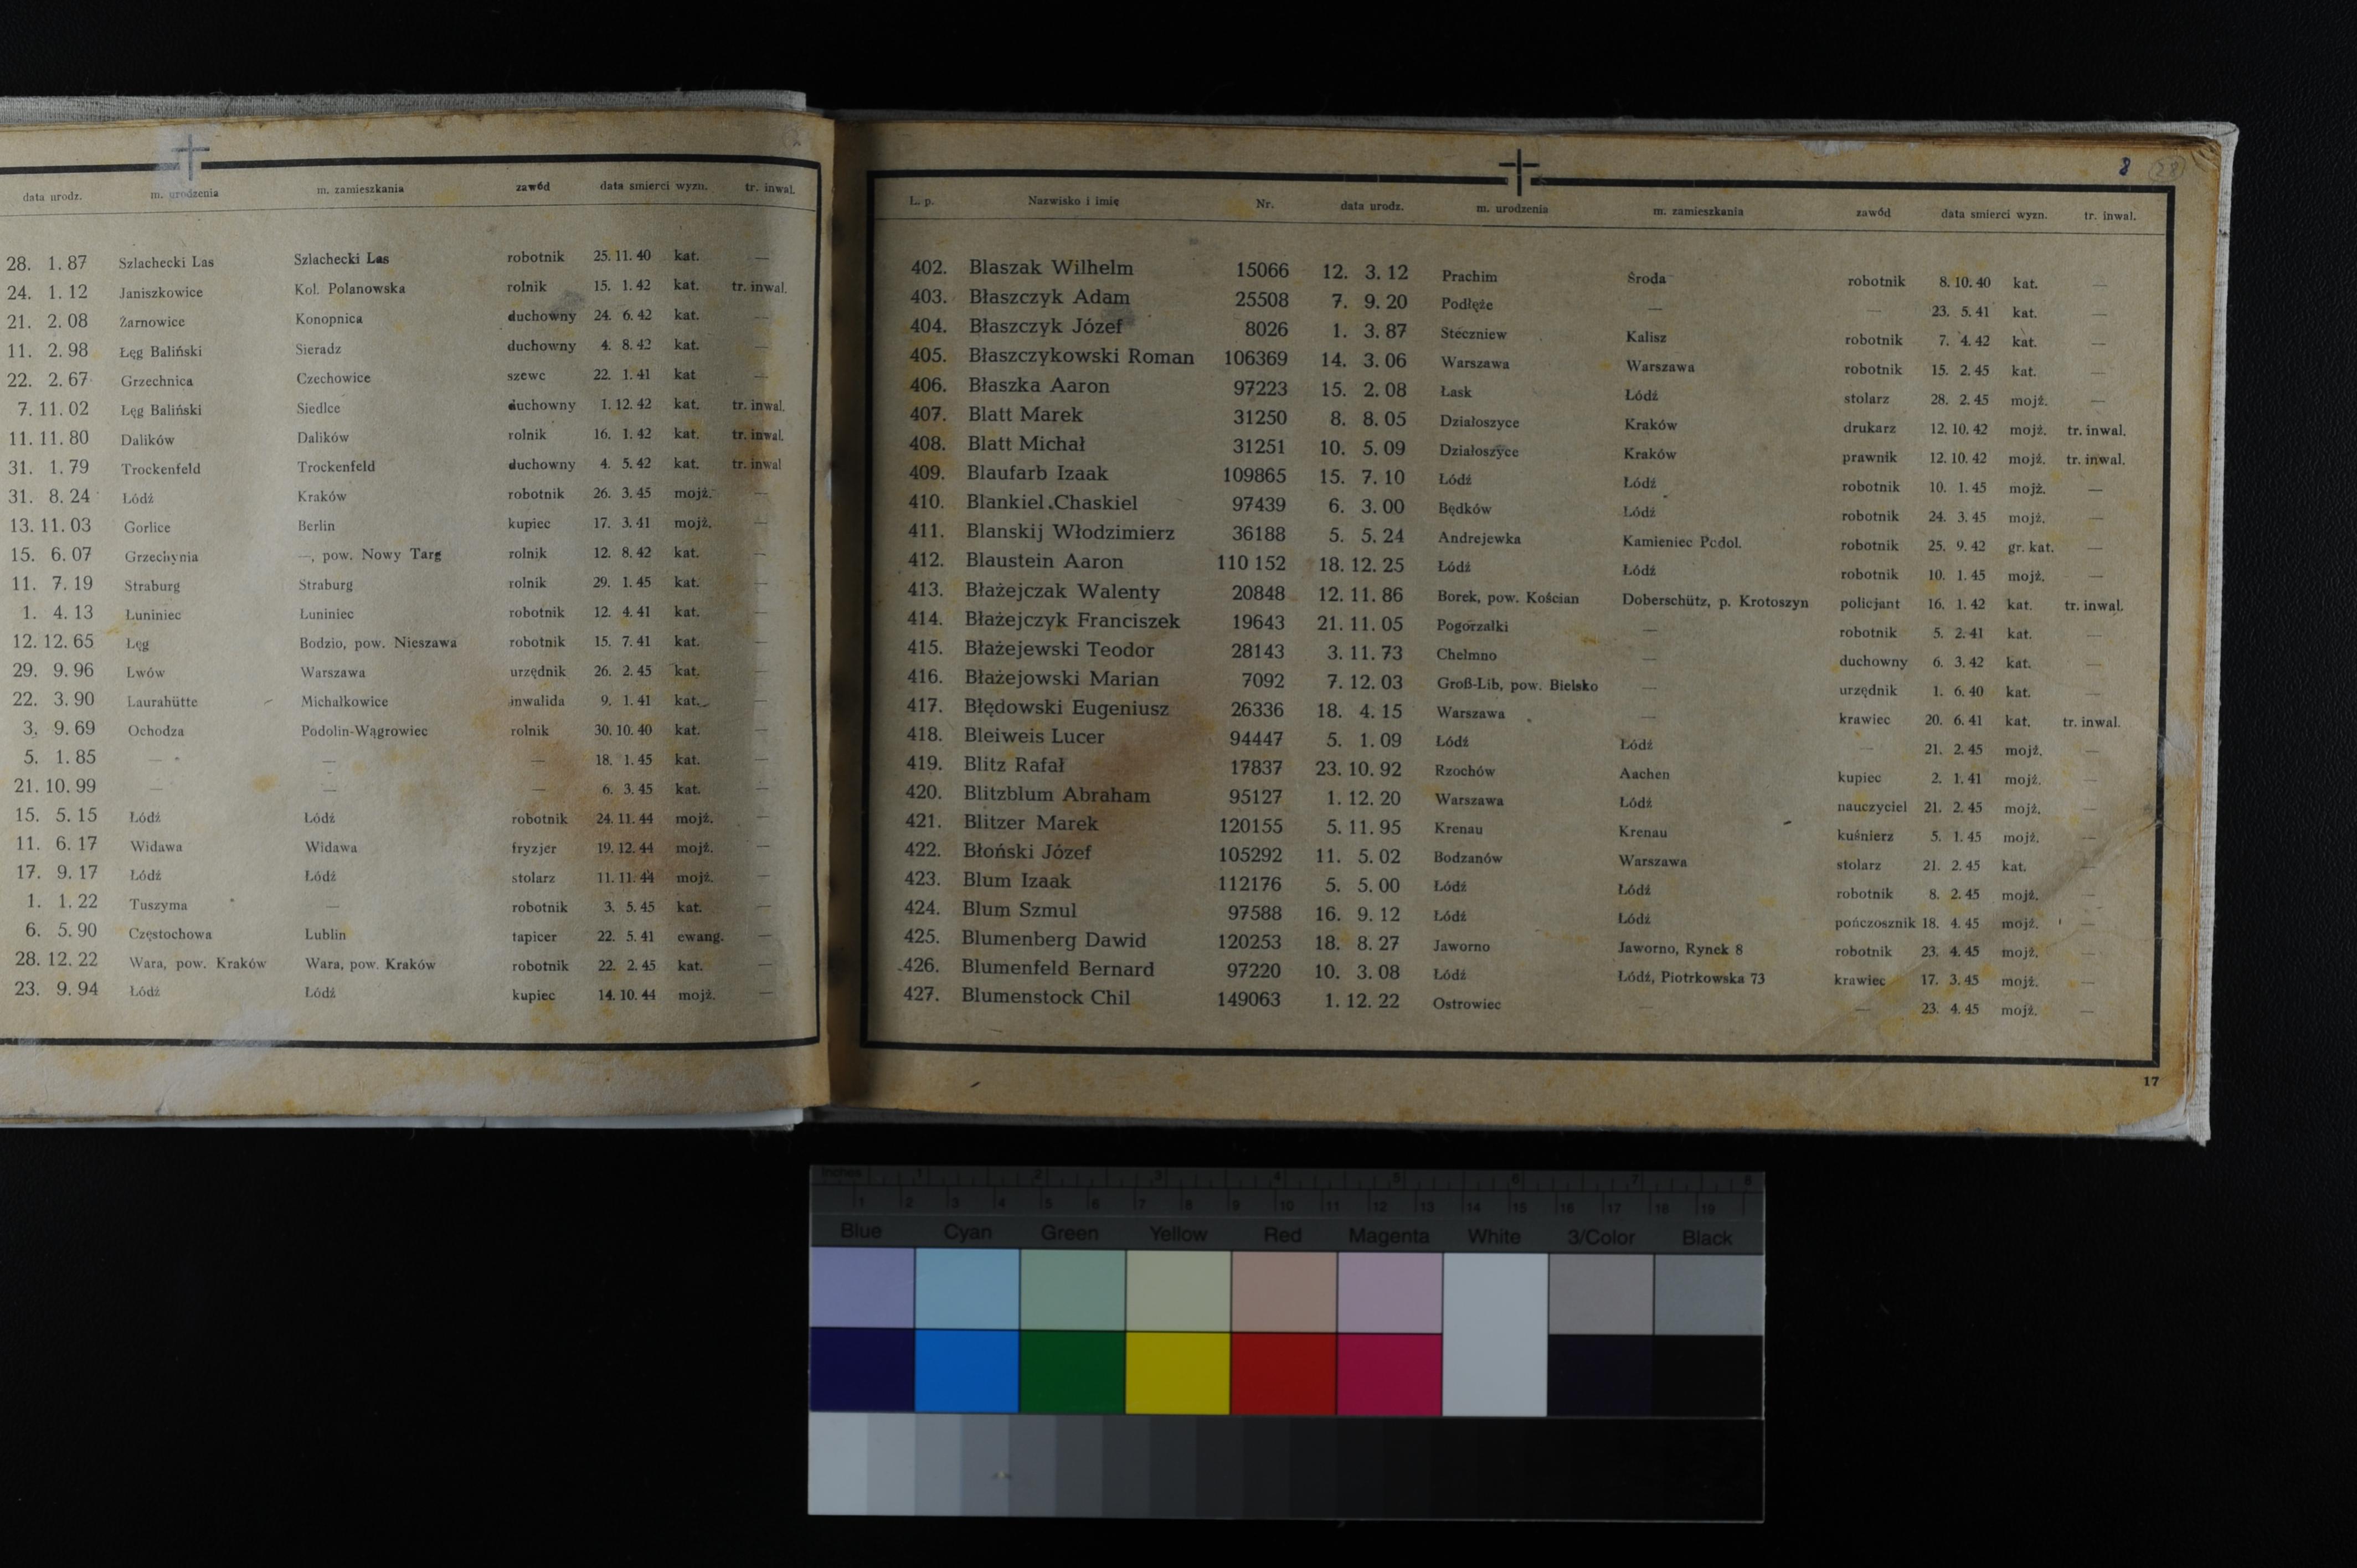 data urodz. m. urodzenia m. zamieszkania zawód data smierci wyzn. tr. inwal.
28. 1. 87 Szlachecki Las Szlachecki Las robotnik 25. 11. 40 kat. —
24. 1. 12 Janiszkowice Kol. Polanowska rolnik 15. 1. 42 kat. tr. inwal.
21. 2. 08 Żarnowice Konopnica duchowny 24. 6. 42 kat. —
11. 2. 98 Łęg Baliński Sieradz duchowny 4. 8. 42 kat. —
22. 2. 67 Grzechnica Czechowice szewc 22. 1. 41 kat —
7. 11. 02 Łęg Baliński Siedlce duchowny 1. 12. 42 kat. tr. inwal.
11. 11. 80 Dalików Dalików rolnik 16. 1. 42 kat. tr. inwal.
31. 1. 79 Trockenfeld Trockenfeld duchowny 4. 5. 42 kat. tr. inwal
31. 8. 24 Łódź Kraków robotnik 26. 3. 45 mojż. —
13. 11. 03 Gorlice Berlin kupiec 17. 3. 41 mojż. —
15. 6. 07 Grzechynia —, pow. Nowy Targ rolnik 12. 8. 42 kat. —
11. 7. 19 Straburg Straburg rolnik 29. 1. 45 kat. —
1. 4. 13 Łuniniec Łuniniec robotnik 12. 4. 41 kat. —
12. 12. 65 Łęg Bodzio, pow. Nieszawa robotnik 15. 7. 41 kat. —
29. 9. 96 Lwów Warszawa urzędnik 26. 2. 45 kat. —
22. 3. 90 Laurahütte Michałkowice inwalida 9. 1. 41 kat. —
3. 9. 69 Ochodza Podolin-Wągrowiec rolnik 30. 10. 40 kat. —
5. 1. 85 — — — 18. 1. 45 kat. —
21. 10. 99 — — — 6. 3. 45 kat. —
15. 5. 15 Łódź Łódź robotnik 24. 11. 44 mojż. —
11. 6. 17 Widawa Widawa fryzjer 19. 12. 44 mojż. —
17. 9. 17 Łódź Łódź stolarz 11. 11. 44 mojż. —
1. 1. 22 Tuszyma — robotnik 3. 5. 45 kat. —
6. 5. 90 Częstochowa Lublin tapicer 22. 5. 41 ewang. —
28. 12. 22 Wara, pow. Kraków Wara, pow. Kraków robotnik 22. 2. 45 kat. —
23. 9. 94 Łódź Łódź kupiec 14. 10. 44 mojż. —
8 28
L. p. Nazwisko i imię Nr. data urodz. m. urodzenia m. zamieszkania zawód data smierci wyzn. tr. inwal.
402. Blaszak Wilhelm 15066 12. 3. 12 Prachim Środa robotnik 8. 10. 40 kat. —
403. Błaszczyk Adam 25508 7. 9. 20 Podłęże — — 23. 5. 41 kat. —
404. Błaszczyk Józef 8026 1. 3. 87 Steczniew Kalisz robotnik 7. 4. 42 kat. —
405. Błaszczykowski Roman 106369 14. 3. 06 Warszawa Warszawa robotnik 15. 2. 45 kat. —
406. Błaszka Aaron 97223 15. 2. 08 Łask Łódź stolarz 28. 2. 45 mojż. —
407. Blatt Marek 31250 8. 8. 05 Działoszyce Kraków drukarz 12. 10. 42 mojż. tr. inwal.
408. Blatt Michał 31251 10. 5. 09 Działoszyce Kraków prawnik 12. 10. 42 mojż. tr. inwal.
409. Blaufarb Izaak 109865 15. 7. 10 Łódź Łódź robotnik 10. 1. 45 mojż. —
410. Blankiel Chaskiel 97439 6. 3. 00 Będków Łódź robotnik 24. 3. 45 mojż. —
411. Blanskij Włodzimierz 36188 5. 5. 24 Andrejewka Kamieniec Podol. robotnik 25. 9. 42 gr. kat. —
412. Blaustein Aaron 110 152 18. 12. 25 Łódź Łódź robotnik 10. 1. 45 mojż. —
413. Błażejczak Walenty 20848 12. 11. 86 Borek, pow. Kościan Doberschütz, p. Krotoszyn policjant 16. 1. 42 kat. tr. inwal.
414. Błażejczyk Franciszek 19643 21. 11. 05 Pogorzałki — robotnik 5. 2. 41 kat. —
415. Błażejewski Teodor 28143 3. 11. 73 Chelmno — duchowny 6. 3. 42 kat. —
416. Błażejowski Marian 7092 7. 12. 03 Groß-Lib, pow. Bielsko — urzędnik 1. 6. 40 kat. —
417. Błędowski Eugeniusz 26336 18. 4. 15 Warszawa — krawiec 20. 6. 41 kat. tr. inwal.
418. Bleiweis Lucer 94447 5. 1. 09 Łódź Łódź — 21. 2. 45 mojż. —
419. Blitz Rafał 17837 23. 10. 92 Rzochów Aachen kupiec 2. 1. 41 mojż. —
420. Blitzblum Abraham 95127 1. 12. 20 Warszawa Łódź nauczyciel 21. 2. 45 mojż. —
421. Blitzer Marek 120155 5. 11. 95 Krenau Krenau kuśnierz 5. 1. 45 mojż. —
422. Błoński Józef 105292 11. 5. 02 Bodzanów Warszawa stolarz 21. 2. 45 kat. —
423. Blum Izaak 112176 5. 5. 00 Łódź Łódź robotnik 8. 2. 45 mojż. —
424. Blum Szmul 97588 16. 9. 12 Łódź Łódź pończosznik 18. 4. 45 mojż. —
425. Blumenberg Dawid 120253 18. 8. 27 Jaworno Jaworno, Rynek 8 robotnik 23. 4. 45 mojż. —
426. Blumenfeld Bernard 97220 10. 3. 08 Łódź Łódź, Piotrkowska 73 krawiec 17. 3. 45 mojż. —
427. Blumenstock Chil 149063 1. 12. 22 Ostrowiec — — 23. 4. 45 mojż. —
17
Inches 1 2 3 4 5 6 7 8
1 2 3 4 5 6 7 8 9 10 11 12 13 14 15 16 17 18 19
Blue Cyan Green Yellow Red Magenta White 3/Color Black